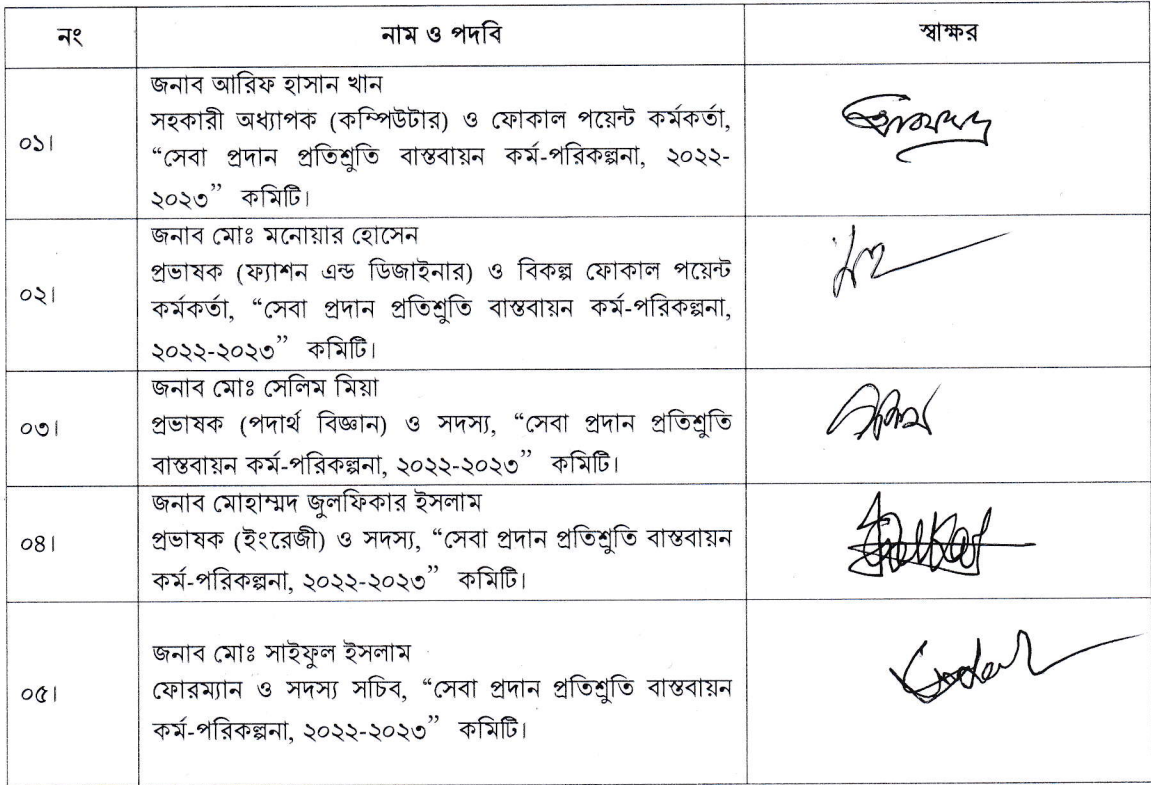 নং নাম ও পদবি স্বাক্ষর
জনাব আরিফ হাসান খান
সহকারী অধ্যাপক (কম্পিউটার) ও ফোকাল পয়েন্ট কর্মকর্তা,
০১। “সেবা প্রদান প্রতিশ্রুতি বাস্তবায়ন কর্ম-পরিকল্পনা, ২০২২-
২০২৩” কমিটি।
জনাব মোঃ মনোয়ার হোসেন
প্রভাষক (ফ্যাশন এন্ড ডিজাইনার) ও বিকল্প ফোকাল পয়েন্ট
০২। কর্মকর্তা, “সেবা প্রদান প্রতিশ্রুতি বাস্তবায়ন কর্ম-পরিকল্পনা,
২০২২-২০২৩” কমিটি।
জনাব মোঃ সেলিম মিয়া
০৩। প্রভাষক (পদার্থ বিজ্ঞান) ও সদস্য, “সেবা প্রদান প্রতিশ্রুতি
বাস্তবায়ন কর্ম-পরিকল্পনা, ২০২২-২০২৩” কমিটি।
জনাব মোহাম্মদ জুলফিকার ইসলাম
০৪। প্রভাষক (ইংরেজী) ও সদস্য, “সেবা প্রদান প্রতিশ্রুতি বাস্তবায়ন
কর্ম-পরিকল্পনা, ২০২২-২০২৩” কমিটি।
জনাব মোঃ সাইফুল ইসলাম
০৫। ফোরম্যান ও সদস্য সচিব, “সেবা প্রদান প্রতিশ্রুতি বাস্তবায়ন
কর্ম-পরিকল্পনা, ২০২২-২০২৩” কমিটি।